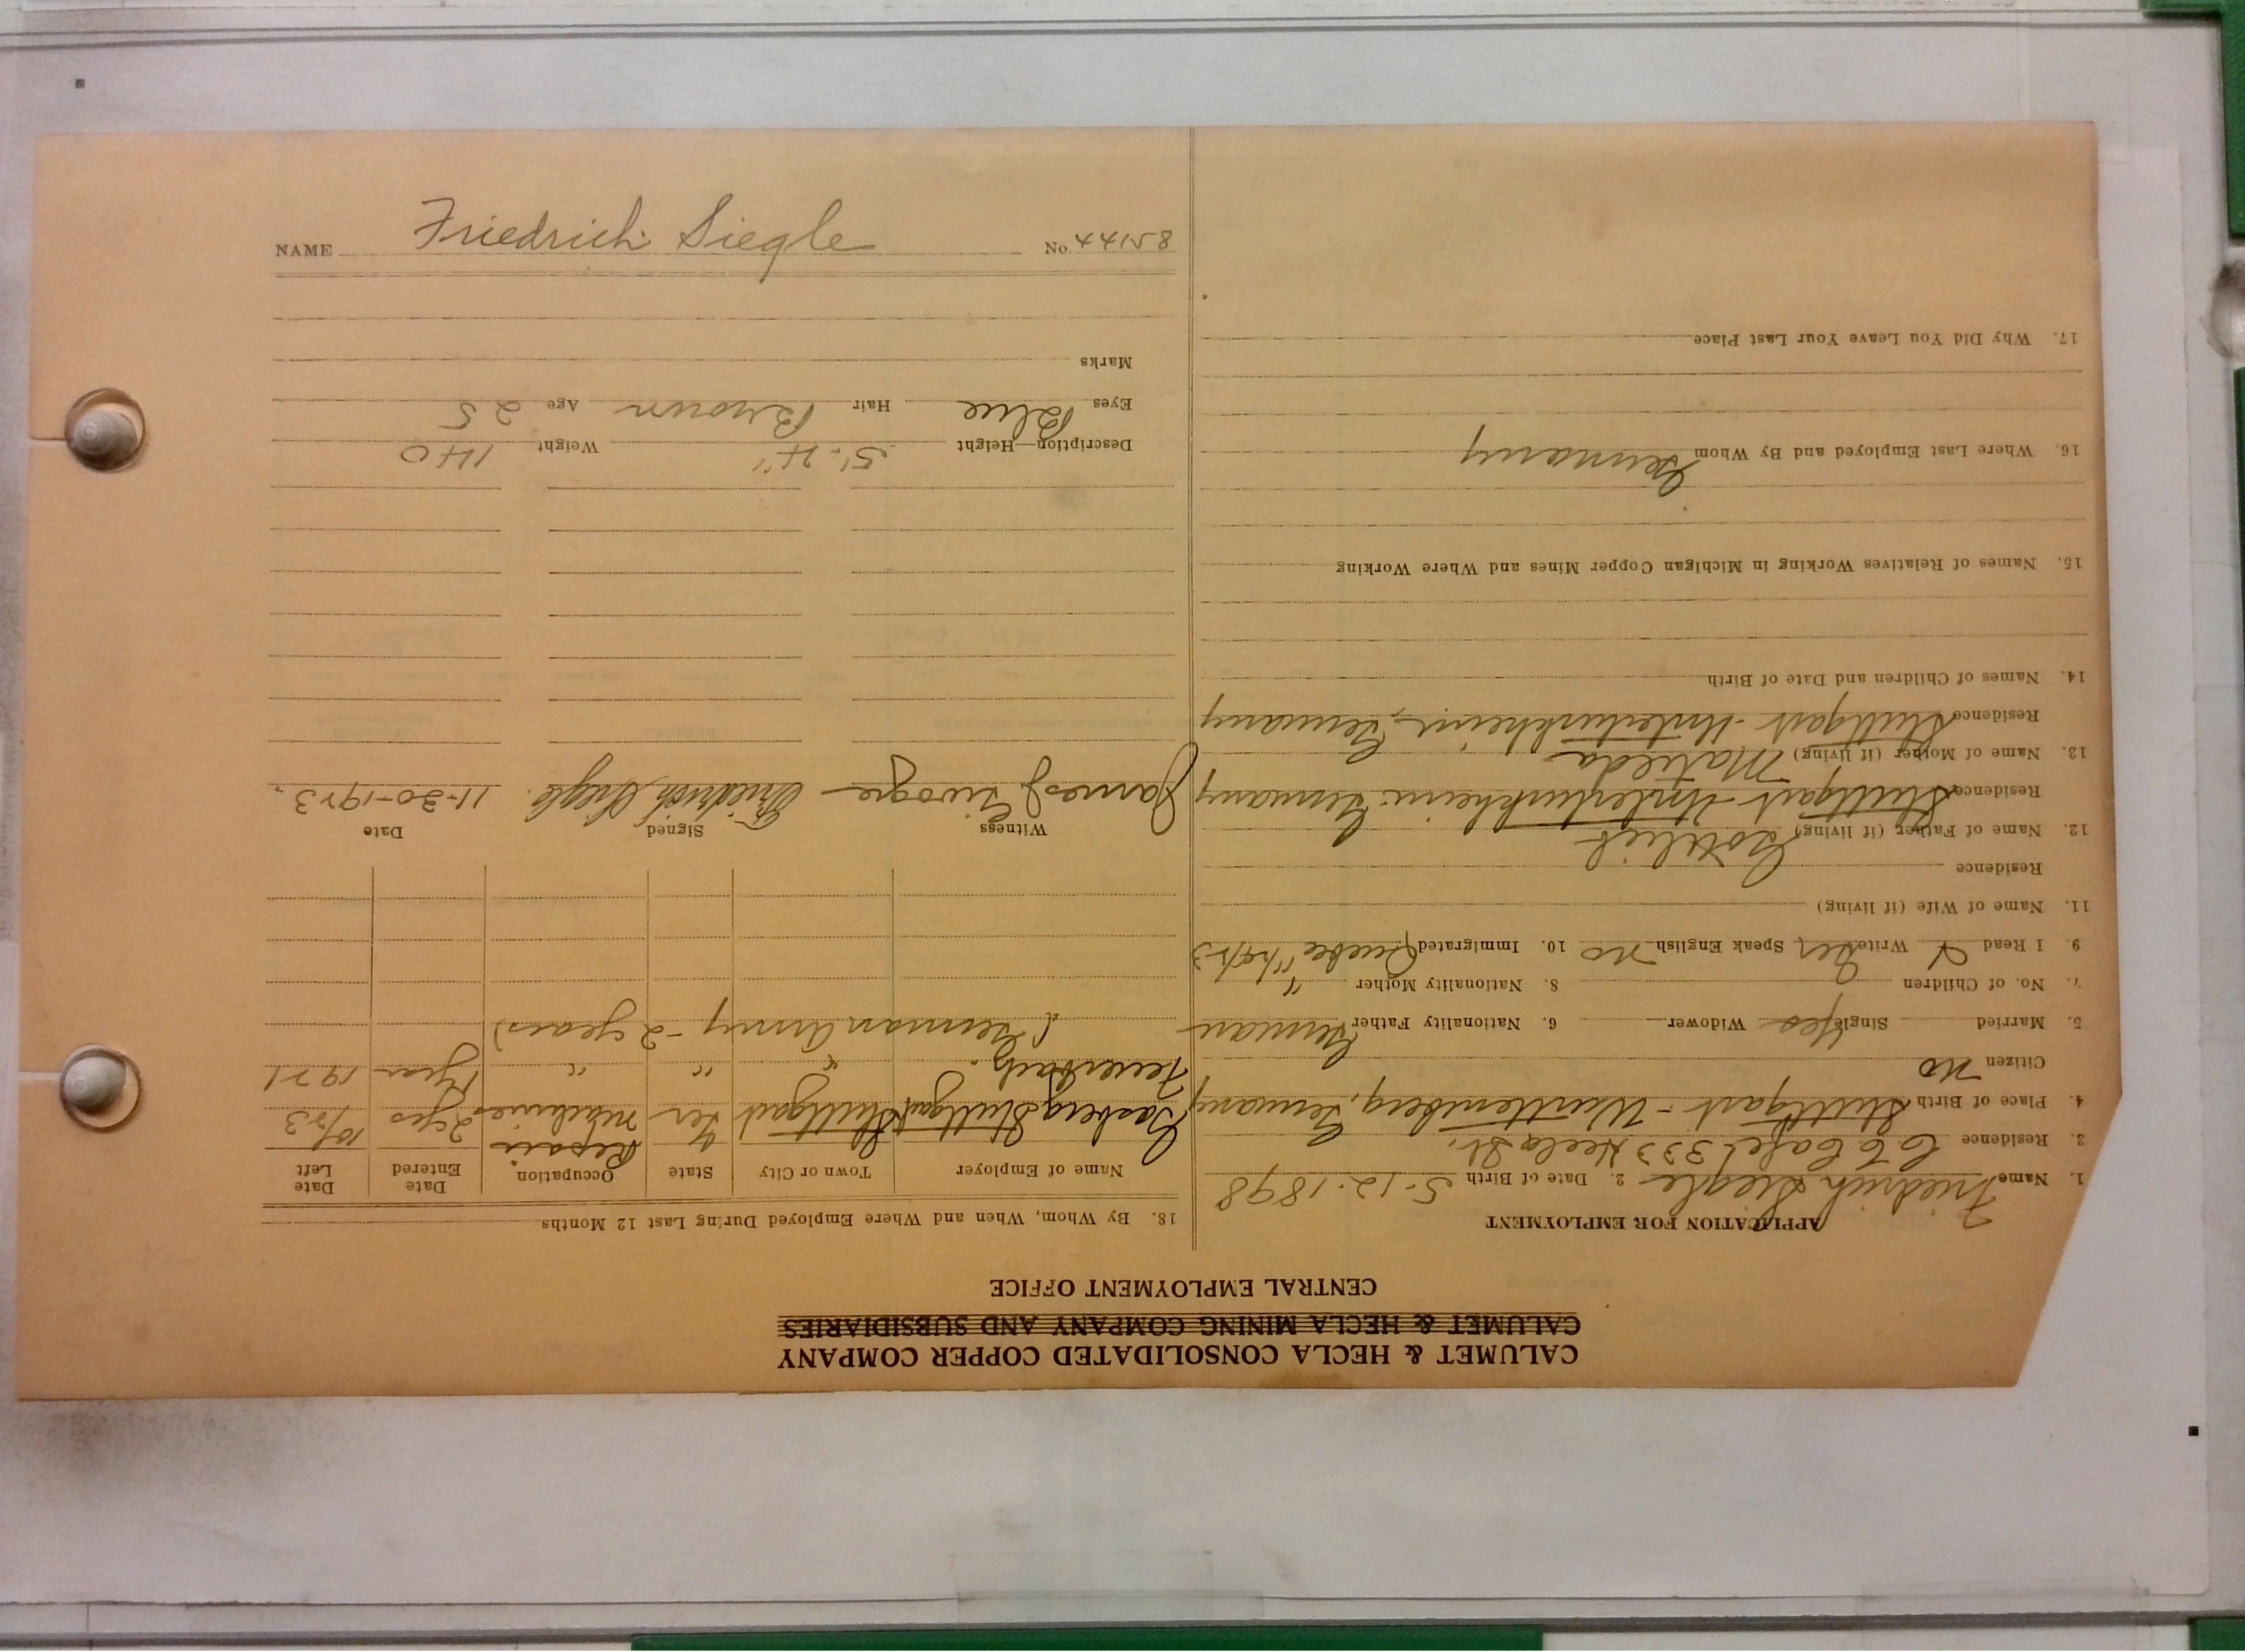 CALUMET & HECLA CONSOLIDATED COPPER COMPANY
CALUMET & HECLA MINING COMPANY AND SUBSIDIARIES
CENTRAL EMPLOYMENT OFFICE
APPLICATION FOR EMPLOYMENT
1. Name Friedrich Siegle 2. Date of Birth 5-12-1898
3. Residence Cafe 333 Hecla St.
4. Place of Birth Stuttgart - Wurttemberg, Germany
Citizen no
5. Married Single yes Widower 6. Nationality Father German
7. No. of Children 8. Nationality Mother "
9. I Read Write Ger Speak English no 10. Immigrated Quebec
11. Name of Wife (if living)
Residence
12. Name of Father (if living) Gottlieb
Residence Stuttgart-Unterturkheim Germany
13. Name of Mother (if living) Matilda
Residence Stuttgart-Unterturkheim, Germany
14. Names of Children and Date of Birth
15. Names of Relatives Working in Michigan Copper Mines and Where Working
16. Where Last Employed and By Whom Germany
17. Why Did You Leave Your Last Place
18. By Whom, When and Where Employed During Last 12 Months
Name of Employer Town or City State Occupation Date Entered Date Left
Stuttgart Stuttgart Ger Repair Machines 2 yrs 10/23
Feuerbach " " " 1 year 1921
(German Army - 2 years)
Witness Signed Date
James J Friedrich Siegle. 11-20-1923.
Description—Height 5'-4" Weight 140
Eyes Blue Hair Brown Age 25
Marks
NAME Friedrich Siegle No. 44158